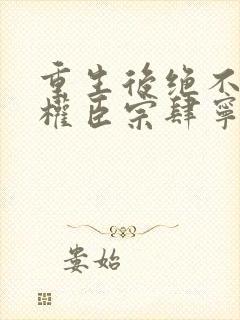 重生後绝不
權臣宗肆寧
娄始